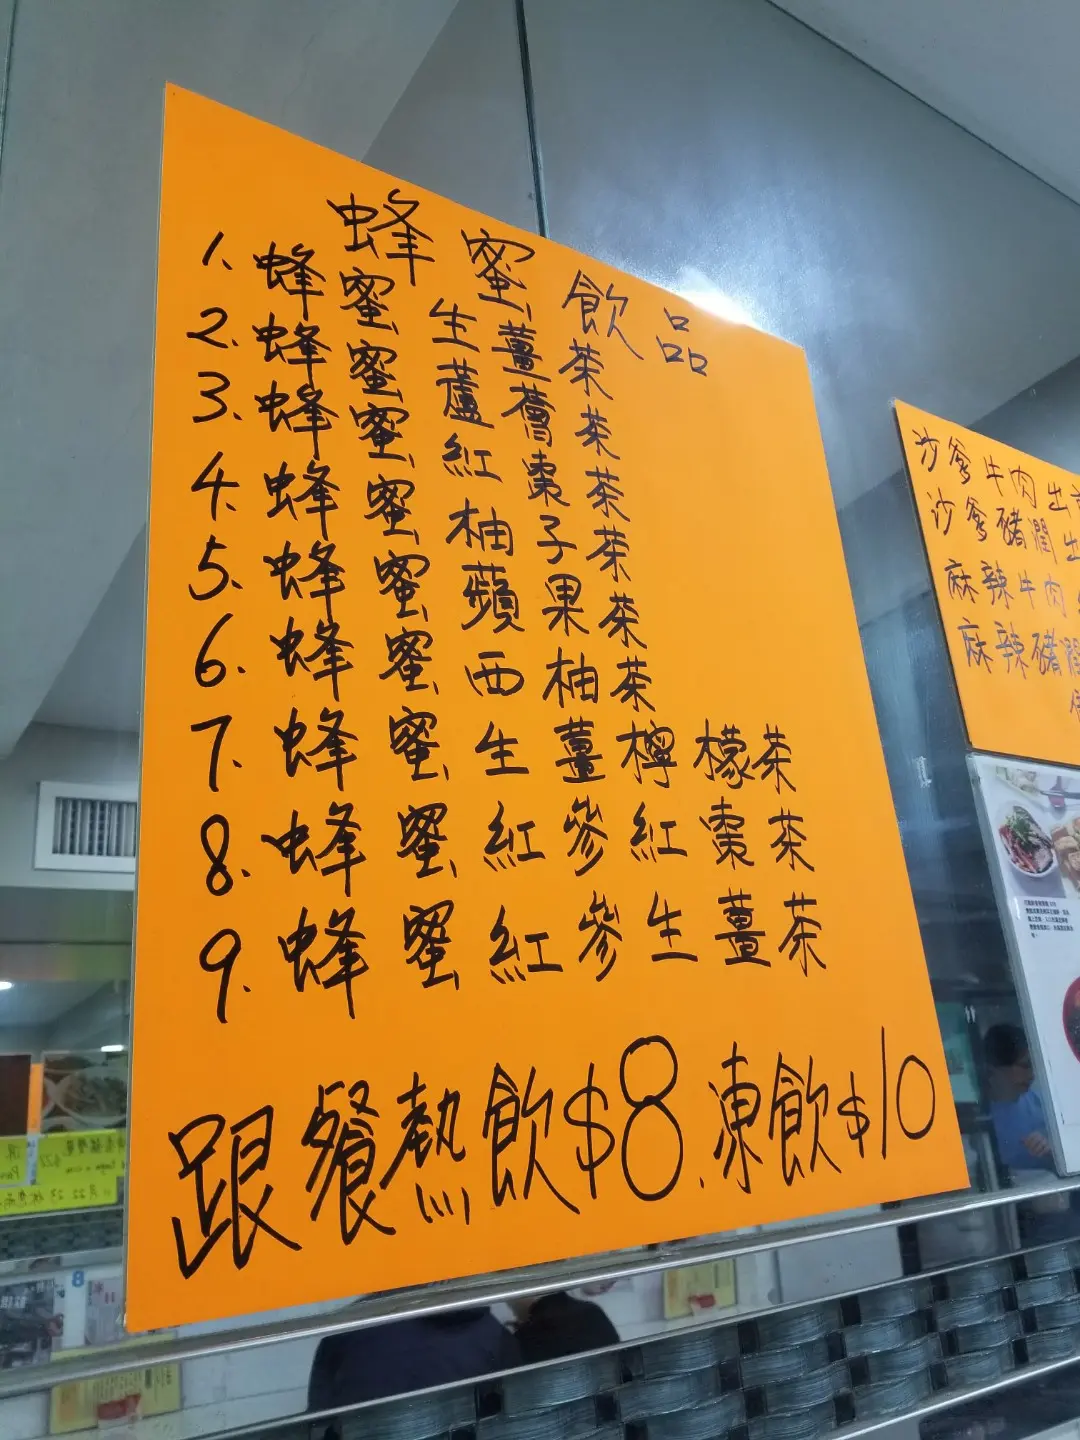 蜂蜜飲品
1. 蜂蜜生薑茶
2. 蜂蜜蘆薈茶
3. 蜂蜜紅棗茶
4. 蜂蜜柚子茶
5. 蜂蜜蘋果茶
6. 蜂蜜西柚茶
7. 蜂蜜生薑檸檬茶
8. 蜂蜜紅參紅棗茶
9. 蜂蜜紅參生薑茶
跟餐熱飲$8.凍飲$10
沙爹牛肉
沙爹豬潤
麻辣牛肉
麻辣豬潤